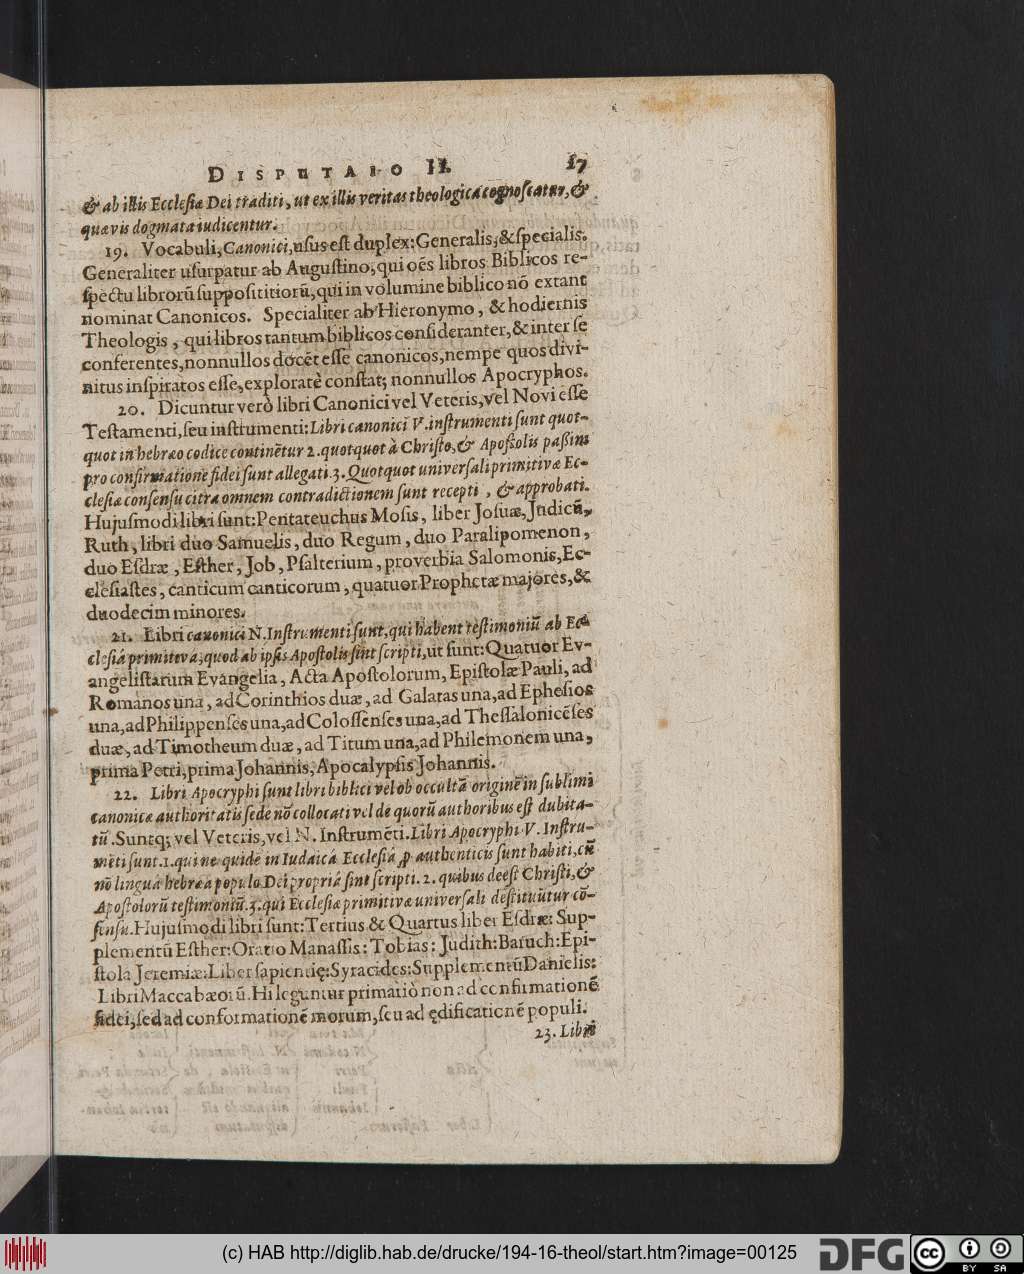 DISPUTAIO II. 17
& ab illis Ecclesiæ Dei traditi, ut ex illis veritas theologica cognoscatur, &
quævis dogmata iudicentur.
19. Vocabuli, Canonici, usus est duplex: Generalis, & specialis.
Generaliter usurpatur ab Augustino, qui oẽs libros Biblicos re-
spectu librorũ supposititiorũ, qui in volumine biblico nõ extant
nominat Canonicos. Specialiter ab Hieronymo, & hodiernis
Theologis, qui libros tantum biblicos consideranter, & inter se
conferentes, nonnullos docẽt esse canonicos, nempe quos divi-
nitus inspiratos esse, exploratè constat; nonnullos Apocryphos.
20. Dicuntur verò libri Canonici vel Veteris, vel Novi esse
Testamenti, seu instrumenti: Libri canonici V. instrumenti sunt quot-
quot in hebræo codice continẽtur 2. quotquot à Christo, & Apostolis passim
pro confirmatione fidei sunt allegati. 3. Quotquot universali primitivæ Ec-
clesiæ consensu citra omnem contradictionem sunt recepti, & approbati.
Hujusmodi libri sunt: Pentateuchus Mosis, liber Josuæ, Judicũ,
Ruth, libri duo Samuelis, duo Regum, duo Paralipomenon,
duo Esdræ, Esther, Job, Psalterium, proverbia Salomonis, Ec-
clesiastes, canticum canticorum, quatuor Prophetæ majores, &
duodecim minores.
21. Libri canonici N. Instrumenti sunt, qui habent testimoniũ ab Ec-
clesiâ primitiva; quod ab ipsis Apostolis sint scripti, ut sunt: Quatuor Ev-
angelistarum Evangelia, Acta Apostolorum, Epistolæ Pauli, ad
Romanos una, ad Corinthios duæ, ad Galatas una, ad Ephesios
una, ad Philippenses una, ad Colossenses una, ad Thessalonicẽses
duæ, ad Timotheum duæ, ad Titum una, ad Philemonem una,
prima Petri, prima Johannis, Apocalypsis Johannis.
22. Libri Apocryphi sunt libri biblici vel ob occultã originẽ in sublimi
canonicæ authoritatis sede nõ collocati vel de quorũ authoribus est dubita-
tũ. Suntq; vel Veteris, vel N. Instrumẽti. Libri Apocryphi V. Instru-
mẽti sunt. 1. qui ne quidẽ in Iudaicâ Ecclesiâ ꝓ authenticis sunt habiti, cũ
nõ linguâ hebræa populo Dei propriâ sint scripti. 2. quibus deest Christi, &
Apostolorũ testimoniũ. 3. qui Ecclesiæ primitivæ universali destituũtur cõ-
sensu. Hujusmodi libri sunt: Tertius & Quartus liber Esdræ: Sup-
plementũ Esther: Oratio Manassis: Tobias: Judith: Baruch: Epi-
stola Jeremiæ: Liber sapientię: Syracides: Supplementũ Danielis:
Libri Maccabæorũ. Hi leguntur primariò non ad confirmationẽ
fidei, sed ad conformationẽ morum, seu ad ędificationẽ populi.
23. Libri
(c) HAB http://diglib.hab.de/drucke/194-16-theol/start.htm?image=00125
DFG
cc BY SA